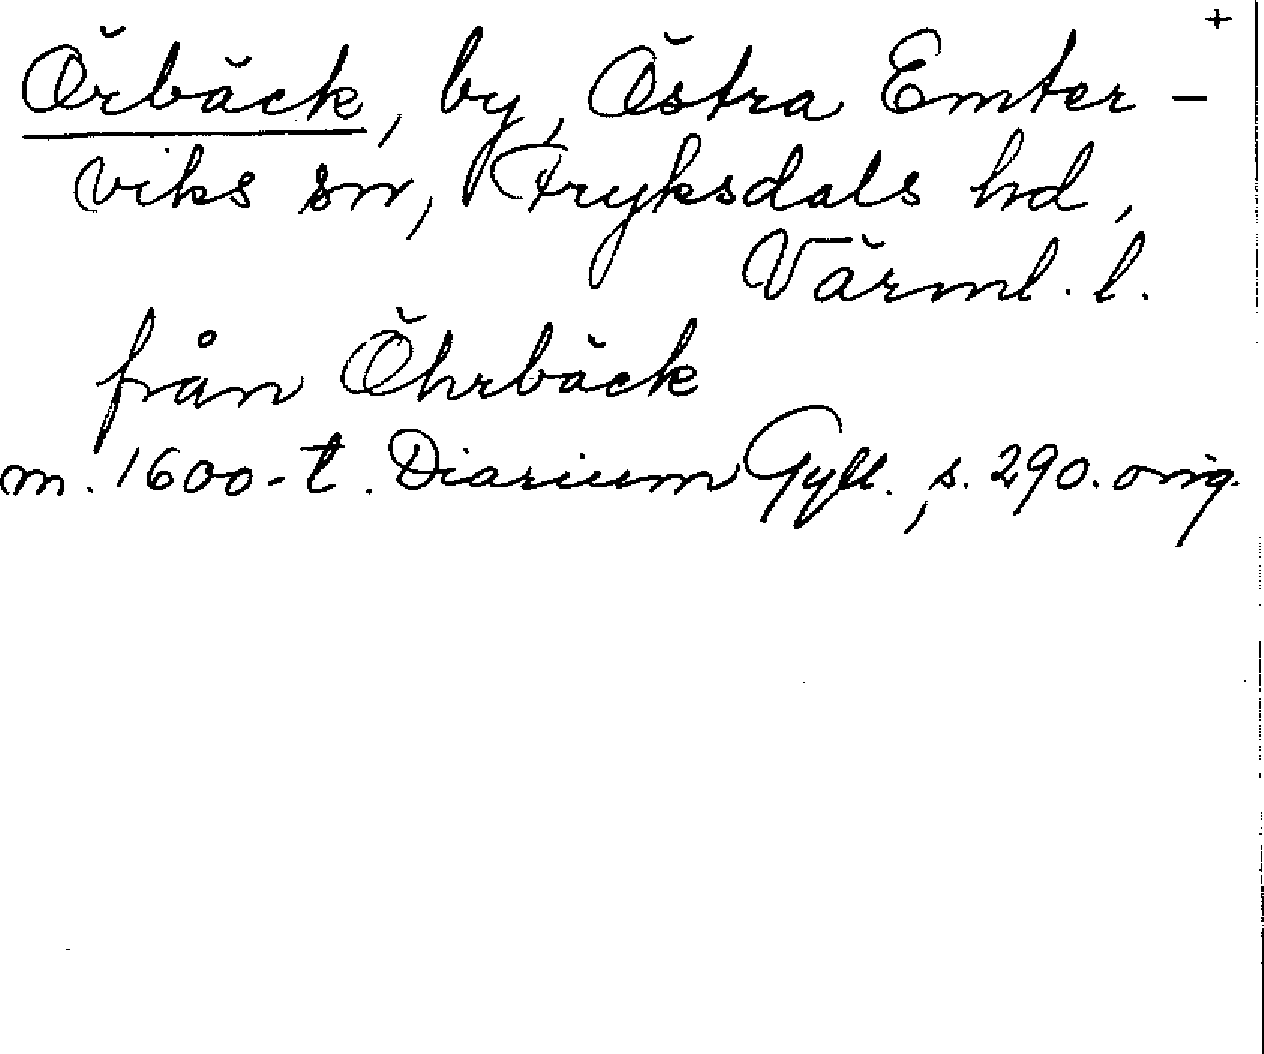 +
Örbäck, by, Östra Emter-
viks sn, Fryksdals hd,
Värml. l.
från Öhrbäck
m. 1600-t. Diarium Gyll., s. 290. orig.